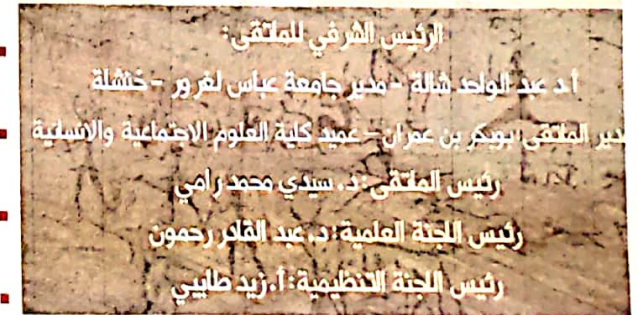 الرئيس الشرفي للملتقى:
أ.د عبد الواحد شالة - مدير جامعة عباس لغرور - خنشلة
مدير الملتقى: بوبكر بن عمران - عميد كلية العلوم الاجتماعية والانسانية
رئيس الملتقى: د. سيدي محمد رامي
رئيس اللجنة العلمية: د. عبد القادر رحمون
رئيس اللجنة التنظيمية: أ. زيد طايبي